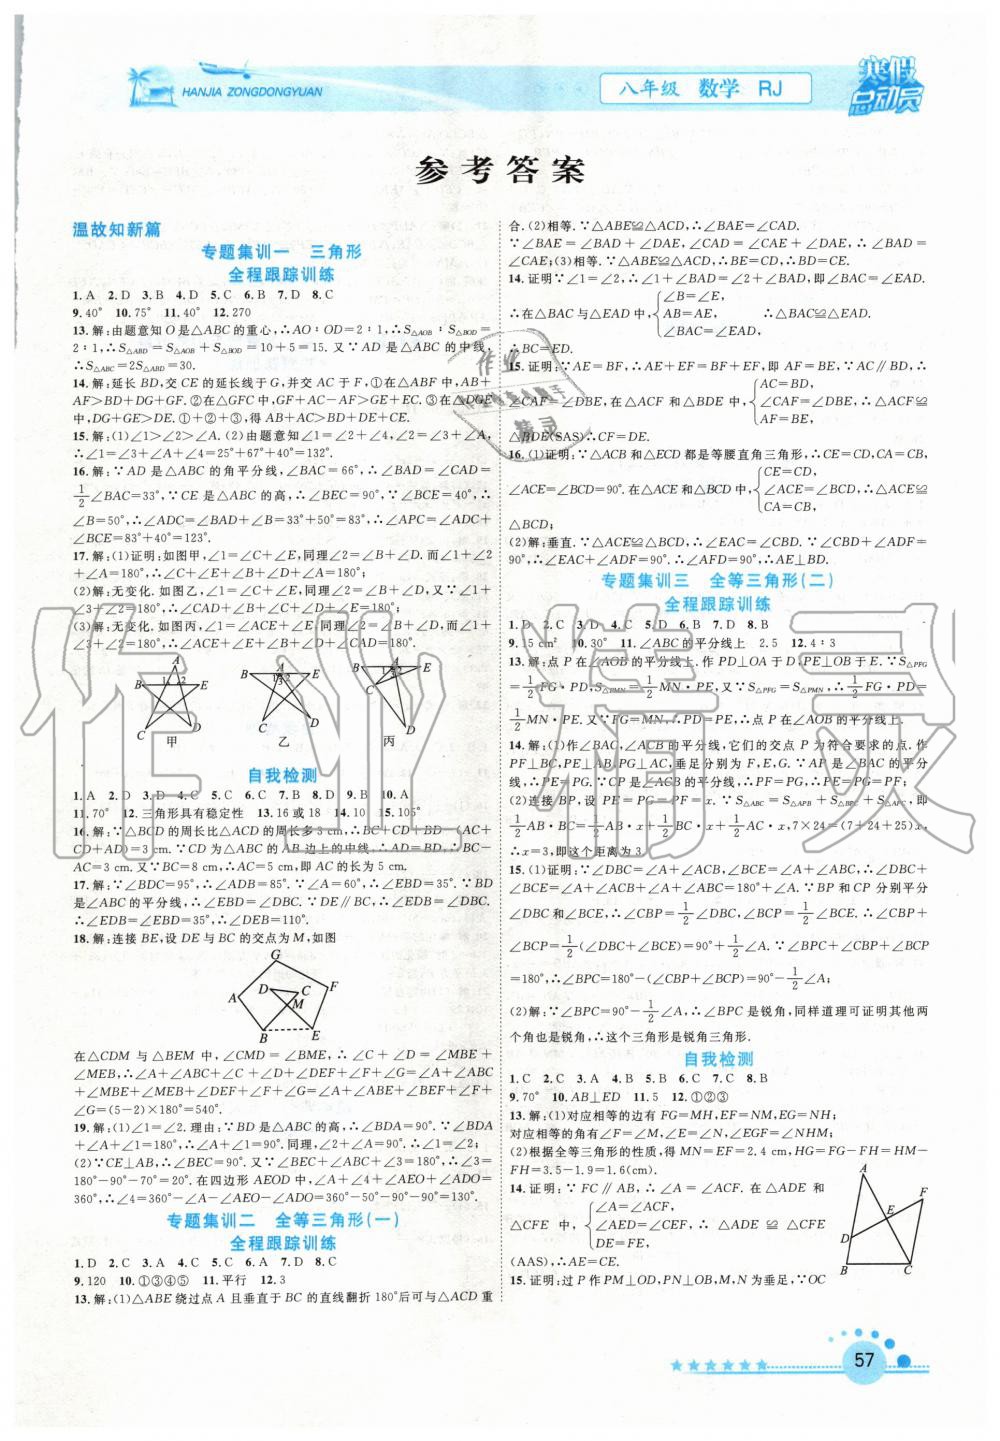 HANJIA ZONGDONGYUAN
八年级 数学 RJ
寒假
总动员
参考答案
温故知新篇
专题集训一 三角形
全程跟踪训练
1. A 2. D 3. B 4. D 5. C 6. B 7. D 8. C
9. 40° 10. 75° 11. 40° 12. 270
13. 解:由题意知O是△ABC的重心,∴AO∶OD=2∶1,∴S△AOB∶S△BOD=
2∶1,∴S△ABD=S△AOB+S△BOD=10+5=15. 又∵AD是△ABC的中线,
∴S△ABC=2S△ABD=30.
14. 解:延长BD,交CE的延长线于G,并交AC于F,①在△ABF中,AB+
AF>BD+DG+GF. ②在△GFC中,GF+AC-AF>GE+EC. ③在△DGE
中,DG+GE>DE. ①+②+③,得AB+AC>BD+DE+CE.
15. 解:(1)∠1>∠2>∠A. (2)由题意知∠1=∠2+∠4,∠2=∠3+∠A,
∴∠1=∠3+∠A+∠4=25°+67°+40°=132°.
16. 解:∵AD是△ABC的角平分线,∠BAC=66°,∴∠BAD=∠CAD=
1/2∠BAC=33°,∵CE是△ABC的高,∴∠BEC=90°,∵∠BCE=40°,∴
∠B=50°,∴∠ADC=∠BAD+∠B=33°+50°=83°,∴∠APC=∠ADC+
∠BCE=83°+40°=123°.
17. 解:(1)证明:如图甲,∠1=∠C+∠E,同理∠2=∠B+∠D. 而∠1+∠2
+∠A=180°,∴∠A+∠B+∠C+∠D+∠E=180°.
(2)解:无变化. 如图乙,∠1=∠C+∠E,同理∠2=∠B+∠D. 又∵∠1+
∠3+∠2=180°,∴∠CAD+∠B+∠C+∠D+∠E=180°.
(3)解:无变化. 如图丙,∠1=∠ACE+∠E,同理∠2=∠B+∠D. 而∠1+
∠3+∠2=180°,∴∠ACE+∠E+∠B+∠D+∠CAD=180°.
A B E C D 1 2 甲
A B E C D 1 3 2 乙
A B E C D 丙
自我检测
1. A 2. D 3. B 4. D 5. C 6. C 7. B 8. D 9. B 10. A
11. 70° 12. 三角形具有稳定性 13. 16或18 14. 10 15. 105°
16. 解:∵△BCD的周长比△ACD的周长多3 cm,∴BC+CD+BD-(AC+
CD+AD)=3 cm. ∵CD为△ABC的AB边上的中线,∴AD=BD,∴BC-
AC=3 cm. 又∵BC=8 cm,∴AC=5 cm,即AC的长为5 cm.
17. 解:∵∠BDC=95°,∴∠ADB=85°. ∵∠A=60°,∴∠EBD=35°. ∵BD
是∠ABC的平分线,∴∠EBD=∠DBC. ∵DE∥BC,∴∠EDB=∠DBC.
∴∠EDB=∠EBD=35°,∴∠DEB=110°.
18. 解:连接BE,设DE与BC的交点为M,如图
G D C F A M B E
在△CDM与△BEM中,∠CMD=∠BME,∴∠C+∠D=∠MBE+
∠MEB,∴∠A+∠ABC+∠C+∠D+∠DEF+∠F+∠G=∠A+∠ABC
+∠MBE+∠MEB+∠DEF+∠F+∠G=∠A+∠ABE+∠BEF+∠F+
∠G=(5-2)×180°=540°.
19. 解:(1)∠1=∠2. 理由:∵BD是△ABC的高,∴∠BDA=90°. ∵∠BDA
+∠A+∠1=180°,∴∠A+∠1=90°. 同理,∠2+∠A=90°. ∴∠1=∠2;
(2)∵CE⊥AB,∴∠BEC=90°. 又∵∠BEC+∠ABC+∠3=180°,∴∠3=
180°-90°-70°=20°. 在四边形AEOD中,∠A+∠4+∠AEO+∠ADO=
360°,∴∠4=360°-∠A-∠AEO-∠ADO=360°-50°-90°-90°=130°.
专题集训二 全等三角形(一)
全程跟踪训练
1. D 2. C 3. A 4. D 5. B 6. A 7. D 8. C
9. 120 10. ①③④⑤ 11. 平行 12. 3
13. 解:(1)△ABE绕过点A且垂直于BC的直线翻折180°后可与△ACD重
合. (2)相等. ∵△ABE≌△ACD,∴∠BAE=∠CAD.
∵∠BAE=∠BAD+∠DAE,∠CAD=∠CAE+∠DAE,∴∠BAD=
∠CAE;(3)相等. ∵△ABE≌△ACD,∴BE=CD,∴BD=CE.
14. 证明∵∠1=∠2,∴∠1+∠BAD=∠2+∠BAD,即∠BAC=∠EAD.
∠B=∠E,
∴在△BAC与△EAD中, AB=AE, ∴△BAC≌△EAD.
∠BAC=∠EAD,
∴BC=ED.
15. 证明:∵AE=BF,∴AE+EF=BF+EF,即AF=BE,∵AC∥BD,∴
AC=BD
∠CAF=∠DBE,在△ACF和△BDE中, ∠CAF=∠DBE ∴△ACF≌
AF=BE,
△BDE(SAS)∴CF=DE.
16. (1)证明:∵△ACB和△ECD都是等腰直角三角形,∴CE=CD,CA=CB,
CE=CD,
∠ACE=∠BCD=90°. 在△ACE和△BCD中, ∠ACE=∠BCD, ∴△ACE≌
CA=CB,
△BCD;
(2)解:垂直. ∵△ACE≌△BCD,∴∠AEC=∠CBD. ∵∠CBD+∠ADF=
90°,∴∠EAC+∠ADF=90°. ∴∠AFD=90°,∴AE⊥BD.
专题集训三 全等三角形(二)
全程跟踪训练
1. D 2. C 3. D 4. C 5. D 6. B 7. D 8. B
9. 15 cm² 10. 30° 11. ∠ABC的平分线上 2.5 12. 4∶3
13. 解:点P在∠AOB的平分线上. 作PD⊥OA于D,PE⊥OB于E. ∵S△PFG
=1/2FG·PD,S△PMN=1/2MN·PE. 又∵S△PFG=S△PMN,∴1/2FG·PD=
1/2MN·PE. 又∵FG=MN,∴PD=PE,∴点P在∠AOB的平分线上.
14. 解:(1)作∠BAC,∠ACB的平分线,它们的交点P为符合要求的点. 作
PF⊥BC,PE⊥AB,PG⊥AC,垂足分别为F,E,G. ∵AP是∠BAC的平分
线,∴PE=PG. ∵CP是∠ACB的平分线,∴PF=PG,∴PE=PG=PF;
(2)连接BP,设PE=PG=PF=x. ∵S△ABC=S△APB+S△BPC+S△APC,即
1/2AB·BC=1/2AB·x+1/2BC·x+1/2AC·x,7×24=(7+24+25)x,
∴x=3,即这个距离为3.
15. (1)证明:∵∠DBC=∠A+∠ACB,∠BCE=∠A+∠ABC,∴∠DBC+
∠BCE=∠A+∠ACB+∠A+∠ABC=180°+∠A. ∵BP和CP分别平分
∠DBC和∠BCE,∴∠CBP=1/2∠DBC,∠BCP=1/2∠BCE. ∴∠CBP+
∠BCP=1/2(∠DBC+∠BCE)=90°+1/2∠A. ∵∠BPC+∠CBP+∠BCP
=180°,∴∠BPC=180°-(∠CBP+∠BCP)=90°-1/2∠A;
(2)解:∵∠BPC=90°-1/2∠A,∴∠BPC是锐角,同样道理可证明其他两
个角也是锐角,∴这个三角形是锐角三角形.
自我检测
1. C 2. C 3. A 4. B 5. B 6. C 7. C 8. B
9. 70° 10. AB⊥ED 11. 5 12. ①②③
13. 解:(1)对应相等的边有FG=MH,EF=NM,EG=NH;
对应相等的角有∠F=∠M,∠E=∠N,∠EGF=∠NHM;
(2)根据全等三角形的性质,得MN=EF=2.4 cm,HG=FG-FH=HM-
FH=3.5-1.9=1.6(cm).
14. 证明:∵FC∥AB,∴∠A=∠ACF. 在△ADE和
∠A=∠ACF,
△CFE中, ∠AED=∠CEF, ∴△ADE≌△CFE
DE=EF,
(AAS),∴AE=CE.
A F E D B C
15. 证明:过P作PM⊥OD,PN⊥OB,M,N为垂足,∵OC
57
作业精灵